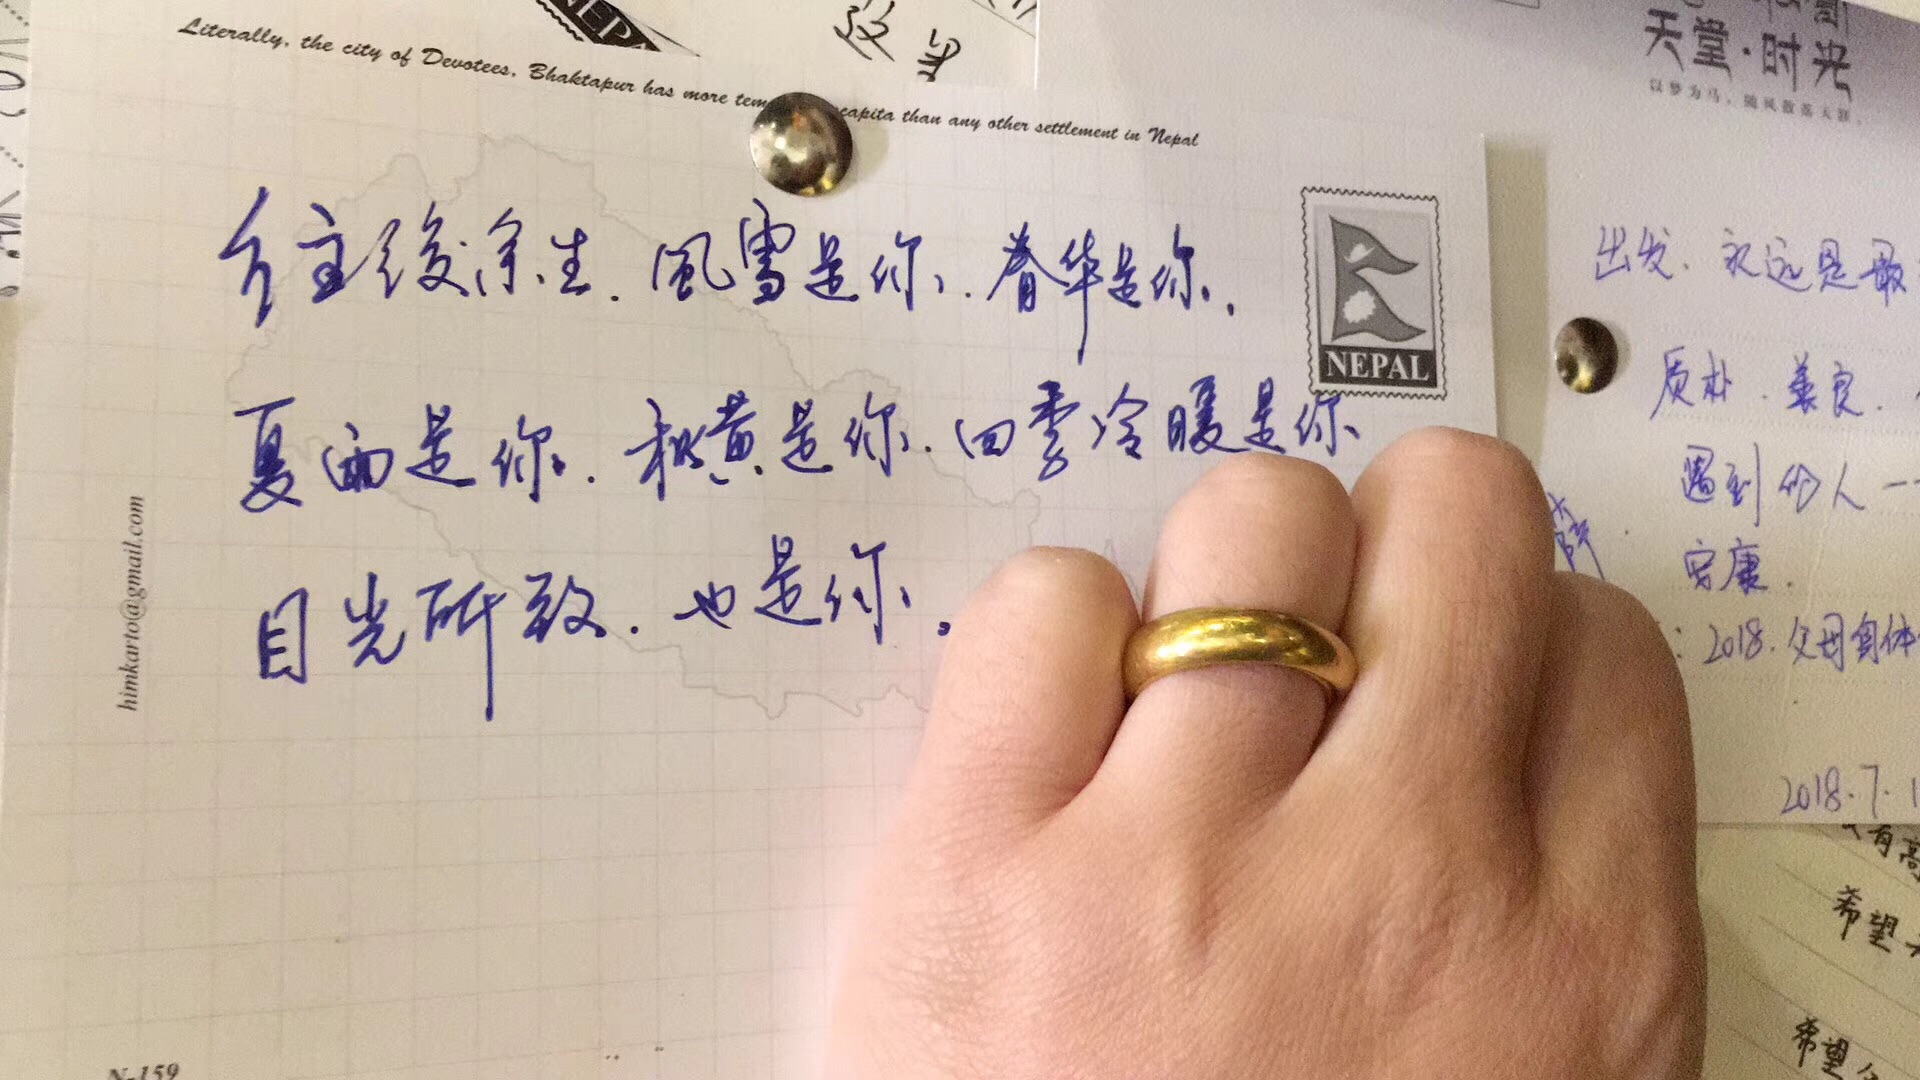 Literally, the city of Devotees, Bhaktapur has more tem capita than any other settlement in Nepal
NEPAL
往后余生.風雪是你.春华是你.
夏雨是你.秋黄是你.四季冷暖是你
目光所致.也是你.
himkarto@gmail.com
N-159
天堂·时光
以梦为马,随风散落天涯.
出发.永远是最
质朴.善良.
遇到的人一
安康.
:2018.父母身体
2018.7.1
有高
希望
希望